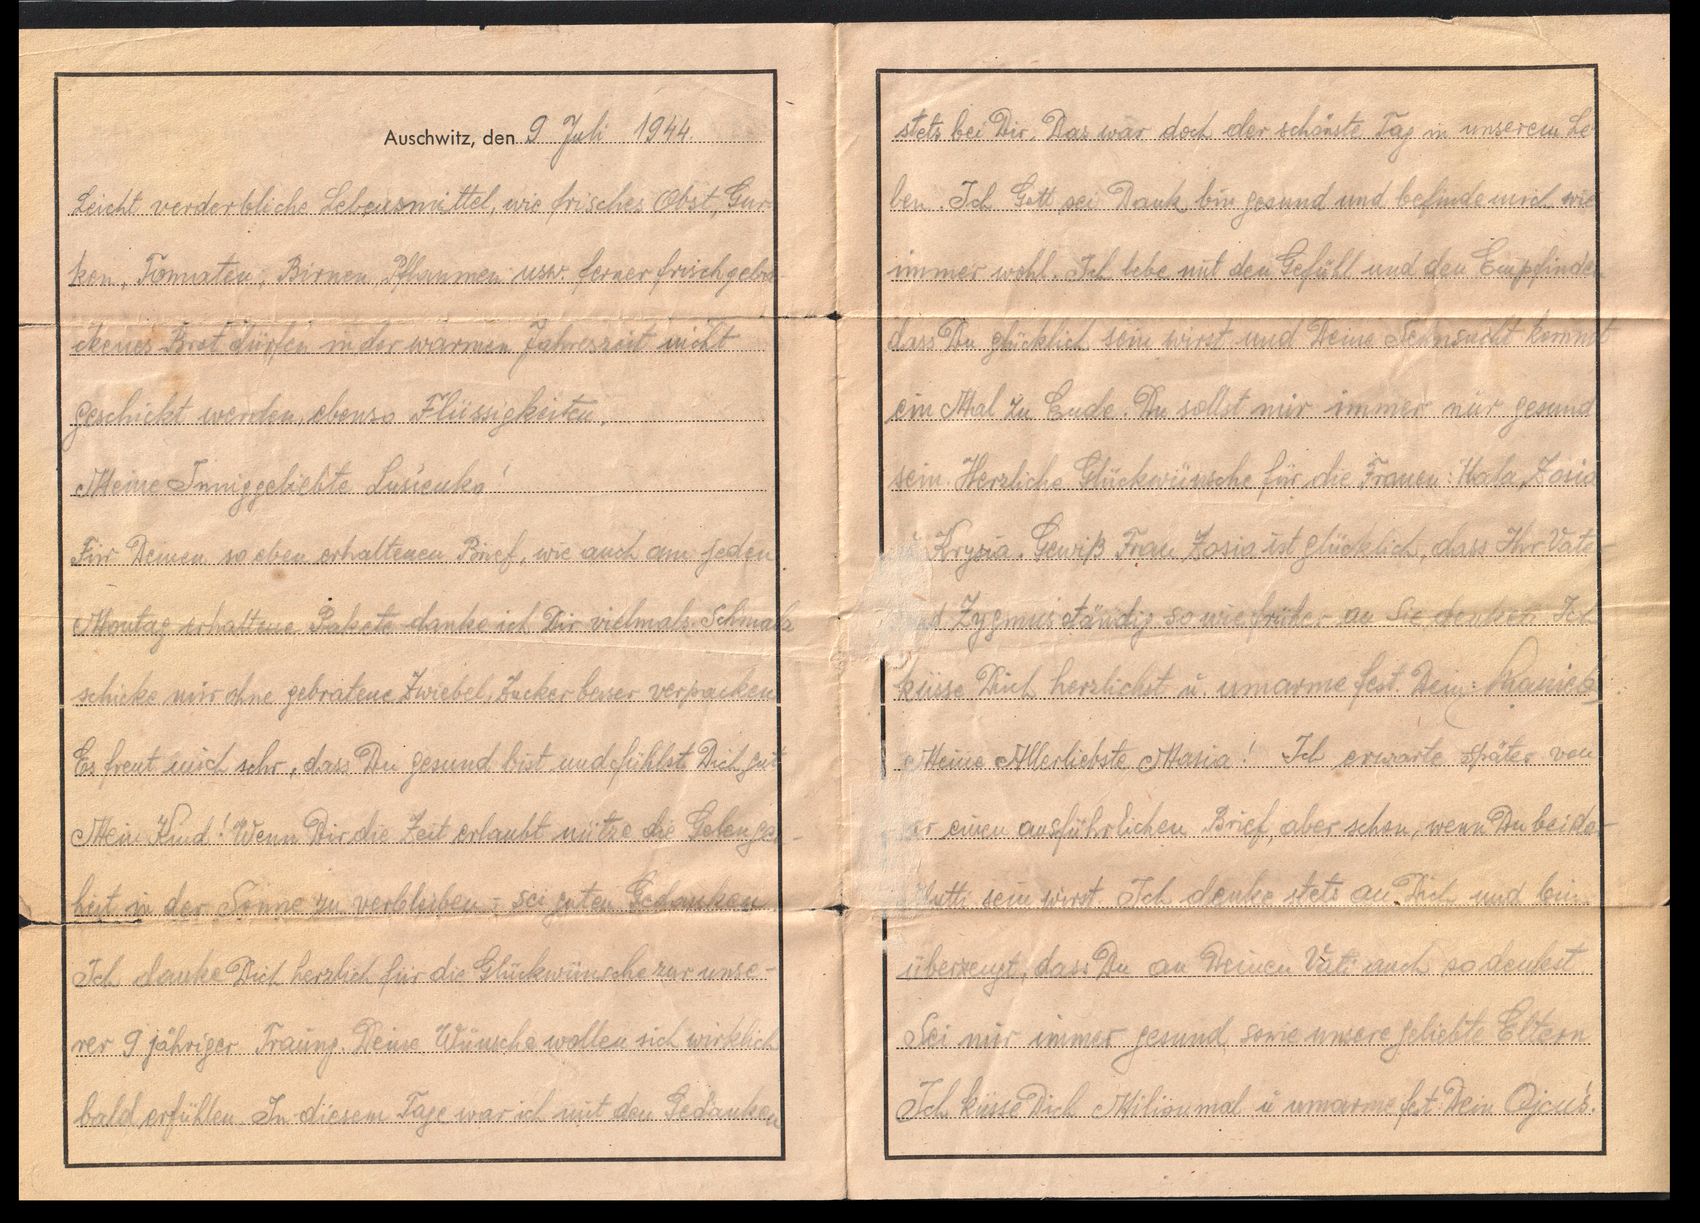 Auschwitz, den 9 Juli 1944.
Leicht verderbliche Lebensmittel, wie frisches Obst, Gur-
ken, Tomaten, Birnen, Pflaumen usw. ferner frisch geba-
ckenes Brot dürfen in der warmen Jahreszeit nicht
geschickt werden, ebenso Flüssigkeiten.
Meine Inniggeliebte Lusieńko!
Für Deinen so eben erhaltenen Brief, wie auch am jeden
Montag erhaltene Pakete danke ich Dir vielmals. Schmalz
schicke mir ohne gebratene Zwiebel, Zucker besser verpacken
Es freut mich sehr, dass Du gesund bist und fühlst Dich gut
Mein Kind! Wenn Dir die Zeit erlaubt nütze die Gelenge-
heit in der Sonne zu verbleiben - sei guten Gedanken
Ich danke Dich herzlich für die Glückwünsche zur unse-
rer 9 jähriger Trauung. Deine Wünsche wollen sich wirklich
bald erfühlen. In diesem Tage war ich mit den Gedanken
stets bei Dir. Das war doch der schönste Tag in unserem Le-
ben. Ich Gott sei Dank bin gesund und befinde mich wie
immer wohl. Ich lebe mit den Gefühl und den Empfinden
dass Du glücklich sein wirst und Deine Sehnsucht kommt
ein Mal zu Ende. Du sollst mir immer nur gesund
sein. Herzliche Glückwünsche für die Frauen: Hala, Zosia
Krysia. Gewiß Frau Zosia ist glücklich, dass Ihr Vater
und Zygmuś ständig so wie früher an Sie denken. Ich
küsse Dich herzlichst u. umarme fest. Dein:
Meine Allerliebste Masia! Ich erwarte später von
einen ausführlichen Brief, aber schon, wenn Du bei der
Mutti sein wirst. Ich denke stets an Dich und bin
überzeugt, dass Du an Deinen Vati auch so denkst
Sei mir immer gesund sowie unsere geliebte Eltern
Ich küsse Dich Milionmal u umarme fest Dein Ojcuś.